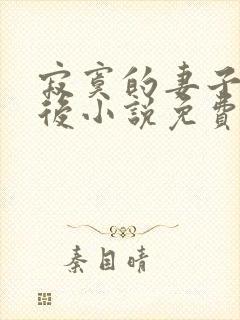 寂寞的妻子
後小說免費
秦目晴